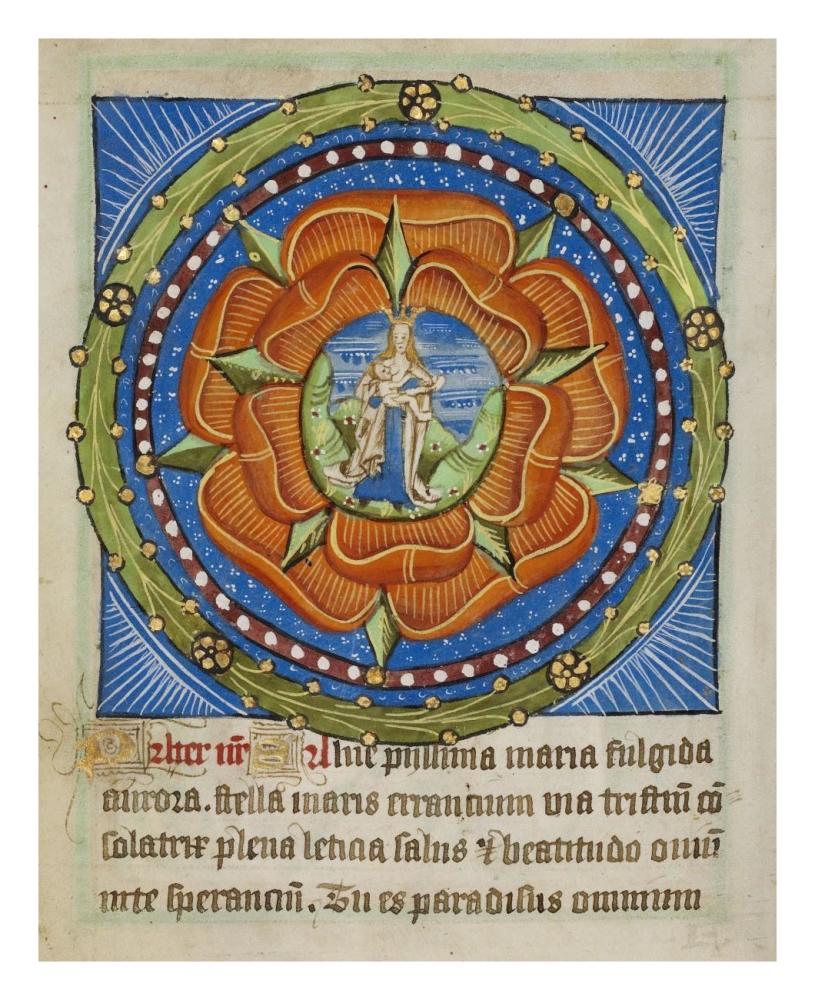 Pater nr̄ Salue pijssima maria fulgida
aurora. stella maris errancium via tristiū cō
solatrix plena leticia salus ⁊ beatitudo oniū
inte speranciū. Tu es paradisus omnium